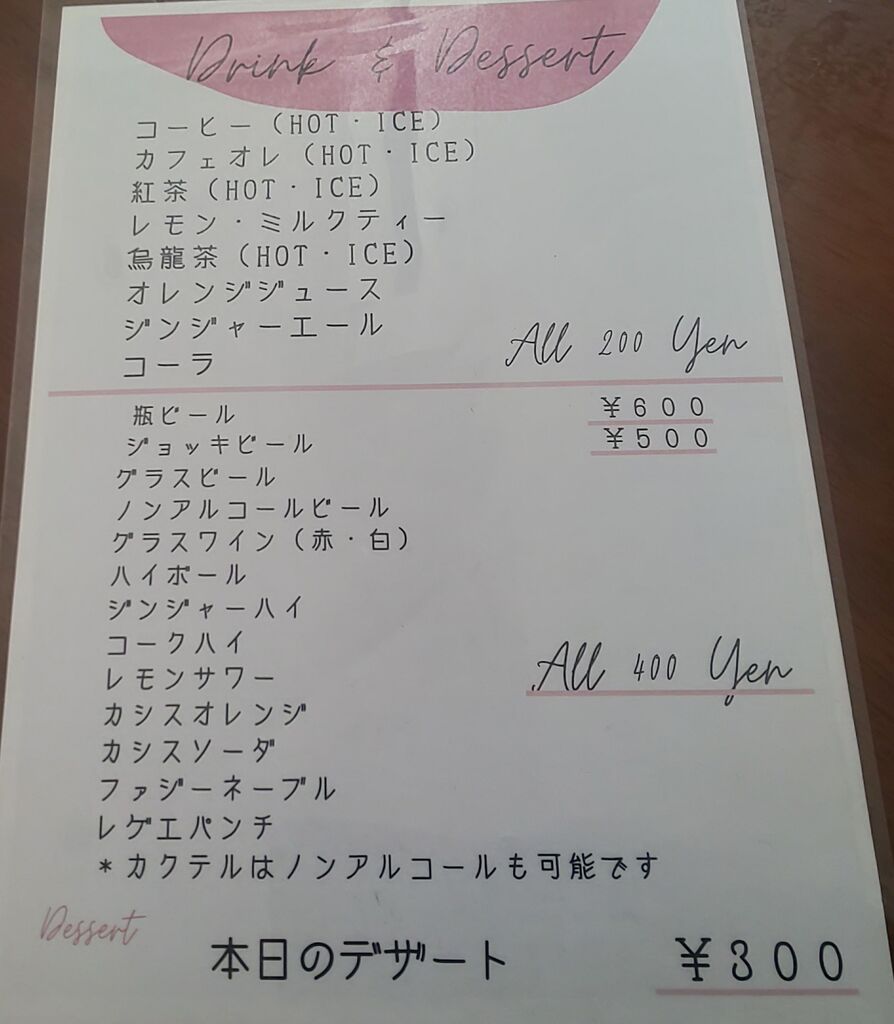 Drink & Dessert
コーヒー（HOT・ICE）
カフェオレ（HOT・ICE）
紅茶（HOT・ICE）
レモン・ミルクティー
烏龍茶（HOT・ICE）
オレンジジュース
ジンジャーエール
コーラ
All 200 Yen
瓶ビール ￥600
ジョッキビール ￥500
グラスビール
ノンアルコールビール
グラスワイン（赤・白）
ハイボール
ジンジャーハイ
コークハイ
レモンサワー
All 400 Yen
カシスオレンジ
カシスソーダ
ファジーネーブル
レゲエパンチ
*カクテルはノンアルコールも可能です
Dessert
本日のデザート ￥300